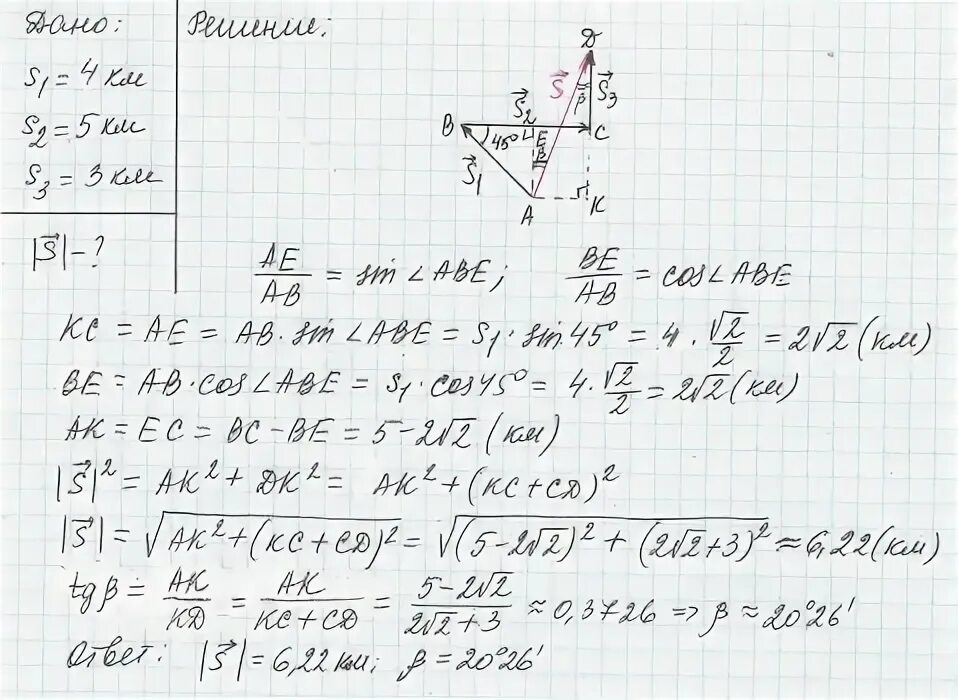 Дано:
S₁ = 4 км
S₂ = 5 км
S₃ = 3 км
|S⃗| – ?
Решение:
D
S⃗
β
S⃗₃
S⃗₂
B
45°
E
C
β
S⃗₁
A
K
AE/AB = sin ∠ABE; BE/AB = cos∠ABE
KC = AE = AB · sin ∠ABE = S₁ · sin 45° = 4 · √2/2 = 2√2 (км)
BE = AB · cos∠ABE = S₁ · cos45° = 4 · √2/2 = 2√2 (км)
AK = EC = BC – BE = 5 – 2√2 (км)
|S⃗|² = AK² + DK² = AK² + (KC + CD)²
|S⃗| = √(AK² + (KC + CD)²) = √((5 – 2√2)² + (2√2 + 3)²) ≈ 6,22 (км)
tg β = AK/KD = AK/(KC + CD) = (5 – 2√2)/(2√2 + 3) ≈ 0,3726 ⇒ β ≈ 20°26'
Ответ: |S⃗| = 6,22 км; β = 20°26'